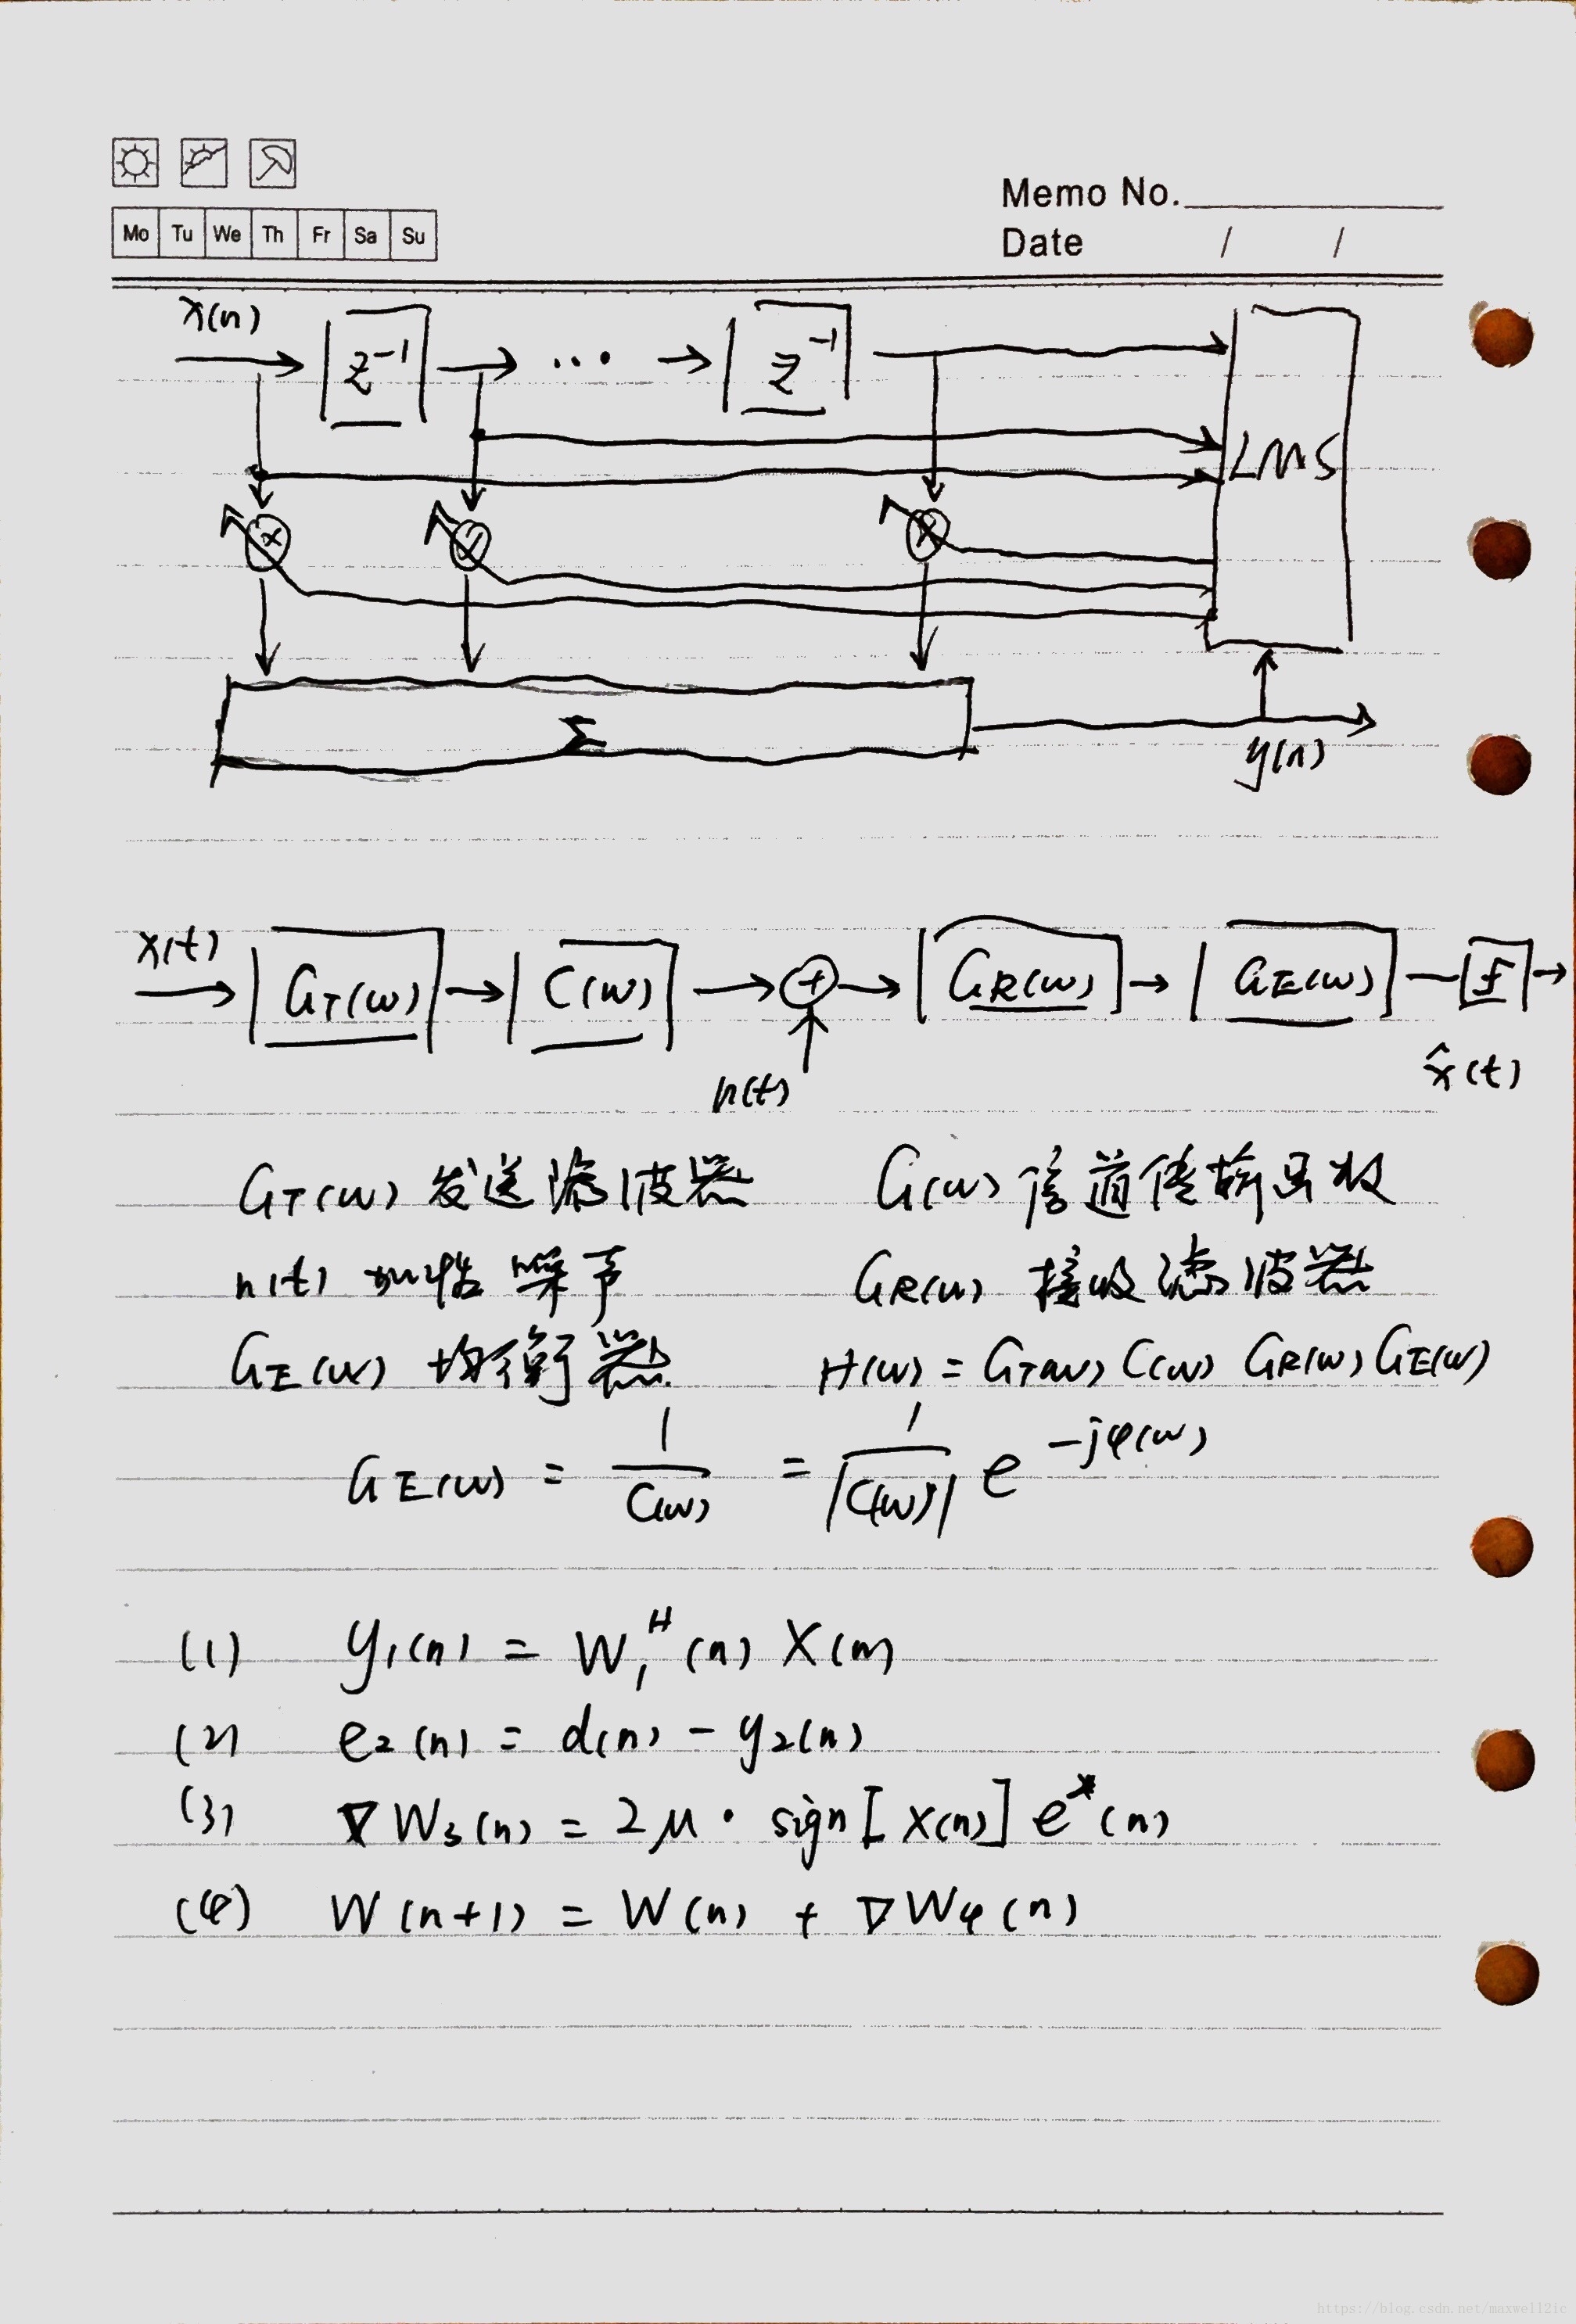 Memo No.
Mo Tu We Th Fr Sa Su
Date / /
x(n)
z⁻¹ ... z⁻¹
LMS
Σ
y(n)
x(t)
G_T(ω) C(ω) + G_R(ω) G_E(ω) f
n(t)
x̂(t)
G_T(ω) 发送滤波器 G(ω) 信道传输函数
n(t) 加性噪声 G_R(ω) 接收滤波器
G_E(ω) 均衡器 H(ω) = G_T(ω) C(ω) G_R(ω) G_E(ω)
G_E(ω) = 1/C(ω) = 1/|C(ω)| e^{-jφ(ω)}
(1) y₁(n) = W₁ᴴ(n) X(n)
(2) e₂(n) = d(n) - y₂(n)
(3) ∇W₃(n) = 2μ · sign[x(n)] e*(n)
(4) W(n+1) = W(n) + ∇W₄(n)
https://blog.csdn.net/maxwell2ic